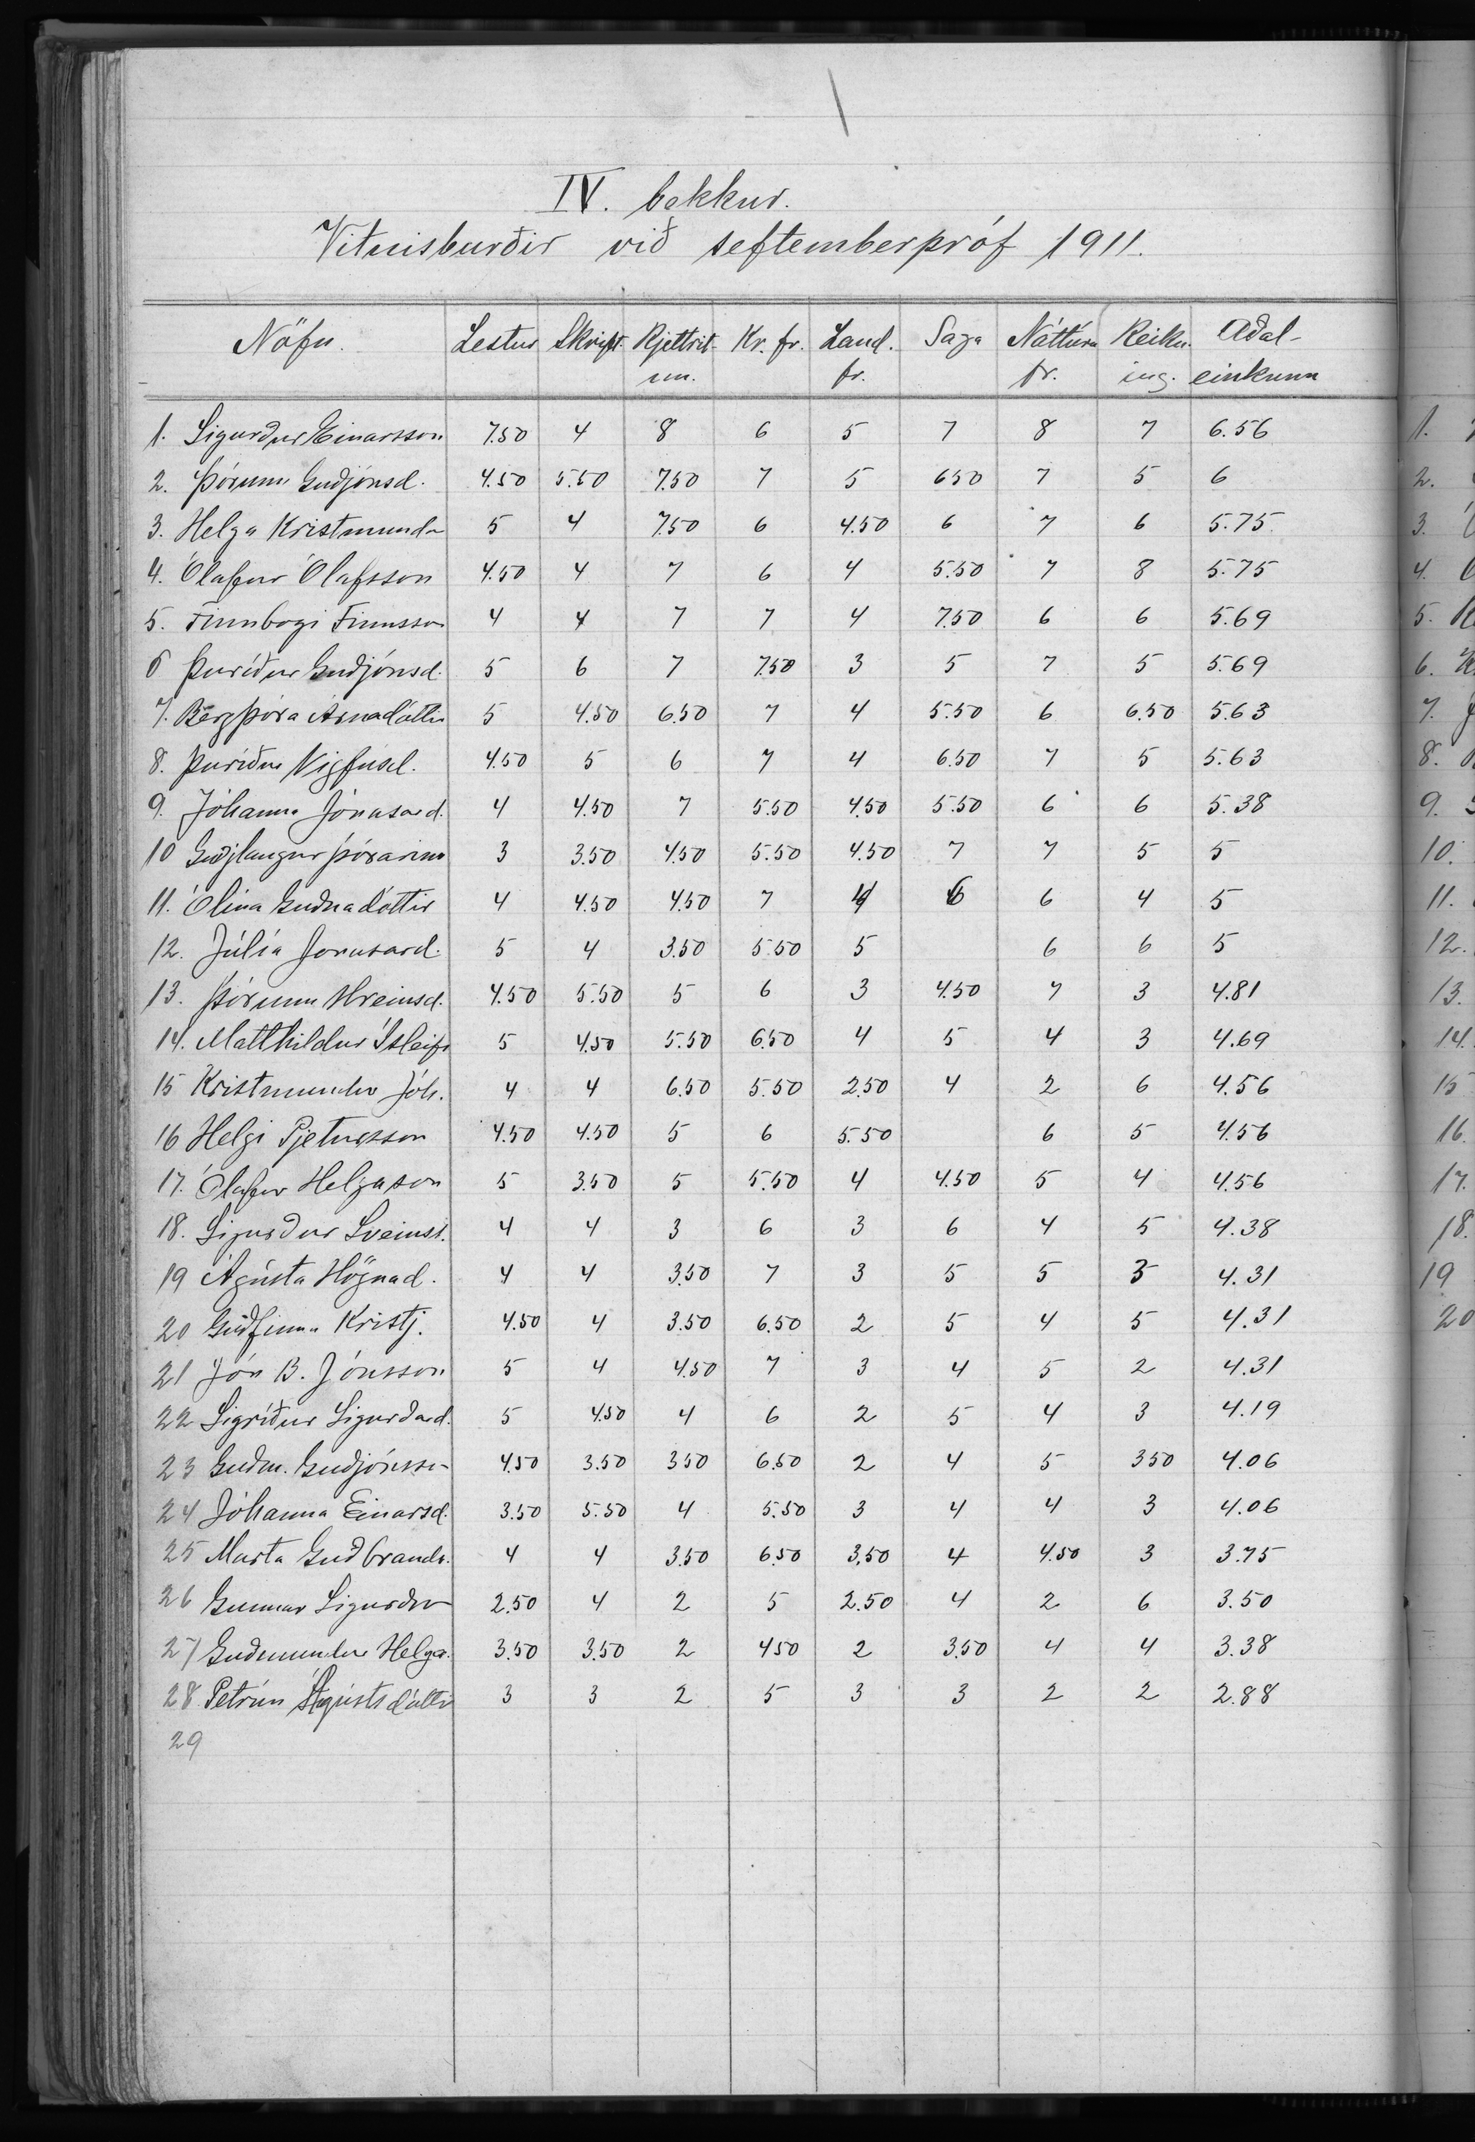 IV. bekkur.
Vitnisburðir við septemberpróf 1911.
Nöfn. Lestur Skrift. Rjettrit- Kr. fr. Land. Saga Náttúru Reikn. Aðal-
un. fr. fr. ing. einkunn
1. Sigurður Einarsson 7.50 4 8 6 5 7 8 7 6.56
2. Þórunn Guðjónsd. 4.50 5.50 7.50 7 5 6.50 7 5 6
3. Helga Kristmunds 5 4 7.50 6 4.50 6 7 6 5.75
4. Ólafur Ólafsson 4.50 4 7 6 4 5.50 7 8 5.75
5. Finnbogi Finnsson 4 4 7 7 4 7.50 6 6 5.69
6 Þuríður Guðjónsd. 5 6 7 7.50 3 5 7 5 5.69
7. Bergþóra Árnadóttir 5 4.50 6.50 7 4 5.50 6 6.50 5.63
8. Þuríður Vigfúsd. 4.50 5 6 7 4 6.50 7 5 5.63
9. Jóhanna Jónasard. 4 4.50 7 5.50 4.50 5.50 6 6 5.38
10 Guðlaugur Þórarins 3 3.50 4.50 5.50 4.50 7 7 5 5
11. Ólína Guðnadóttir 4 4.50 4.50 7 4 6 6 4 5
12. Júlía Jónasard. 5 4 3.50 5.50 5 6 6 5
13. Þórunn Hreinsd. 4.50 5.50 5 6 3 4.50 7 3 4.81
14. Matthildur Ísleifs 5 4.50 5.50 6.50 4 5 4 3 4.69
15 Kristmundur Jóh. 4 4 6.50 5.50 2.50 4 2 6 4.56
16 Helgi Pjetursson 4.50 4.50 5 6 5.50 6 5 4.56
17. Ólafur Helgason 5 3.50 5 5.50 4 4.50 5 4 4.56
18. Sigurður Sveinss. 4 4 3 6 3 6 4 5 4.38
19 Ágústa Högnad. 4 4 3.50 7 3 5 5 3 4.31
20 Guðfinna Kristj. 4.50 4 3.50 6.50 2 5 4 5 4.31
21 Jón B. Jónsson 5 4 4.50 7 3 4 5 2 4.31
22 Sigríður Sigurðard. 5 4.50 4 6 2 5 4 3 4.19
23 Guðm. Guðjónsson 4.50 3.50 350 6.50 2 4 5 350 4.06
24 Jóhanna Einarsd. 3.50 5.50 4 5.50 3 4 4 3 4.06
25 Marta Guðbrands. 4 4 3.50 6.50 3.50 4 4.50 3 3.75
26 Gunnar Sigurður 2.50 4 2 5 2.50 4 2 6 3.50
27 Guðmundur Helgas. 3.50 3.50 2 450 2 3.50 4 4 3.38
28 Petrún Ágústsdóttir 3 3 2 5 3 3 2 2 2.88
29
1.
2.
3.
4.
5.
6.
7.
8.
9.
10.
11.
12.
13.
14.
15
16.
17.
18.
19
20